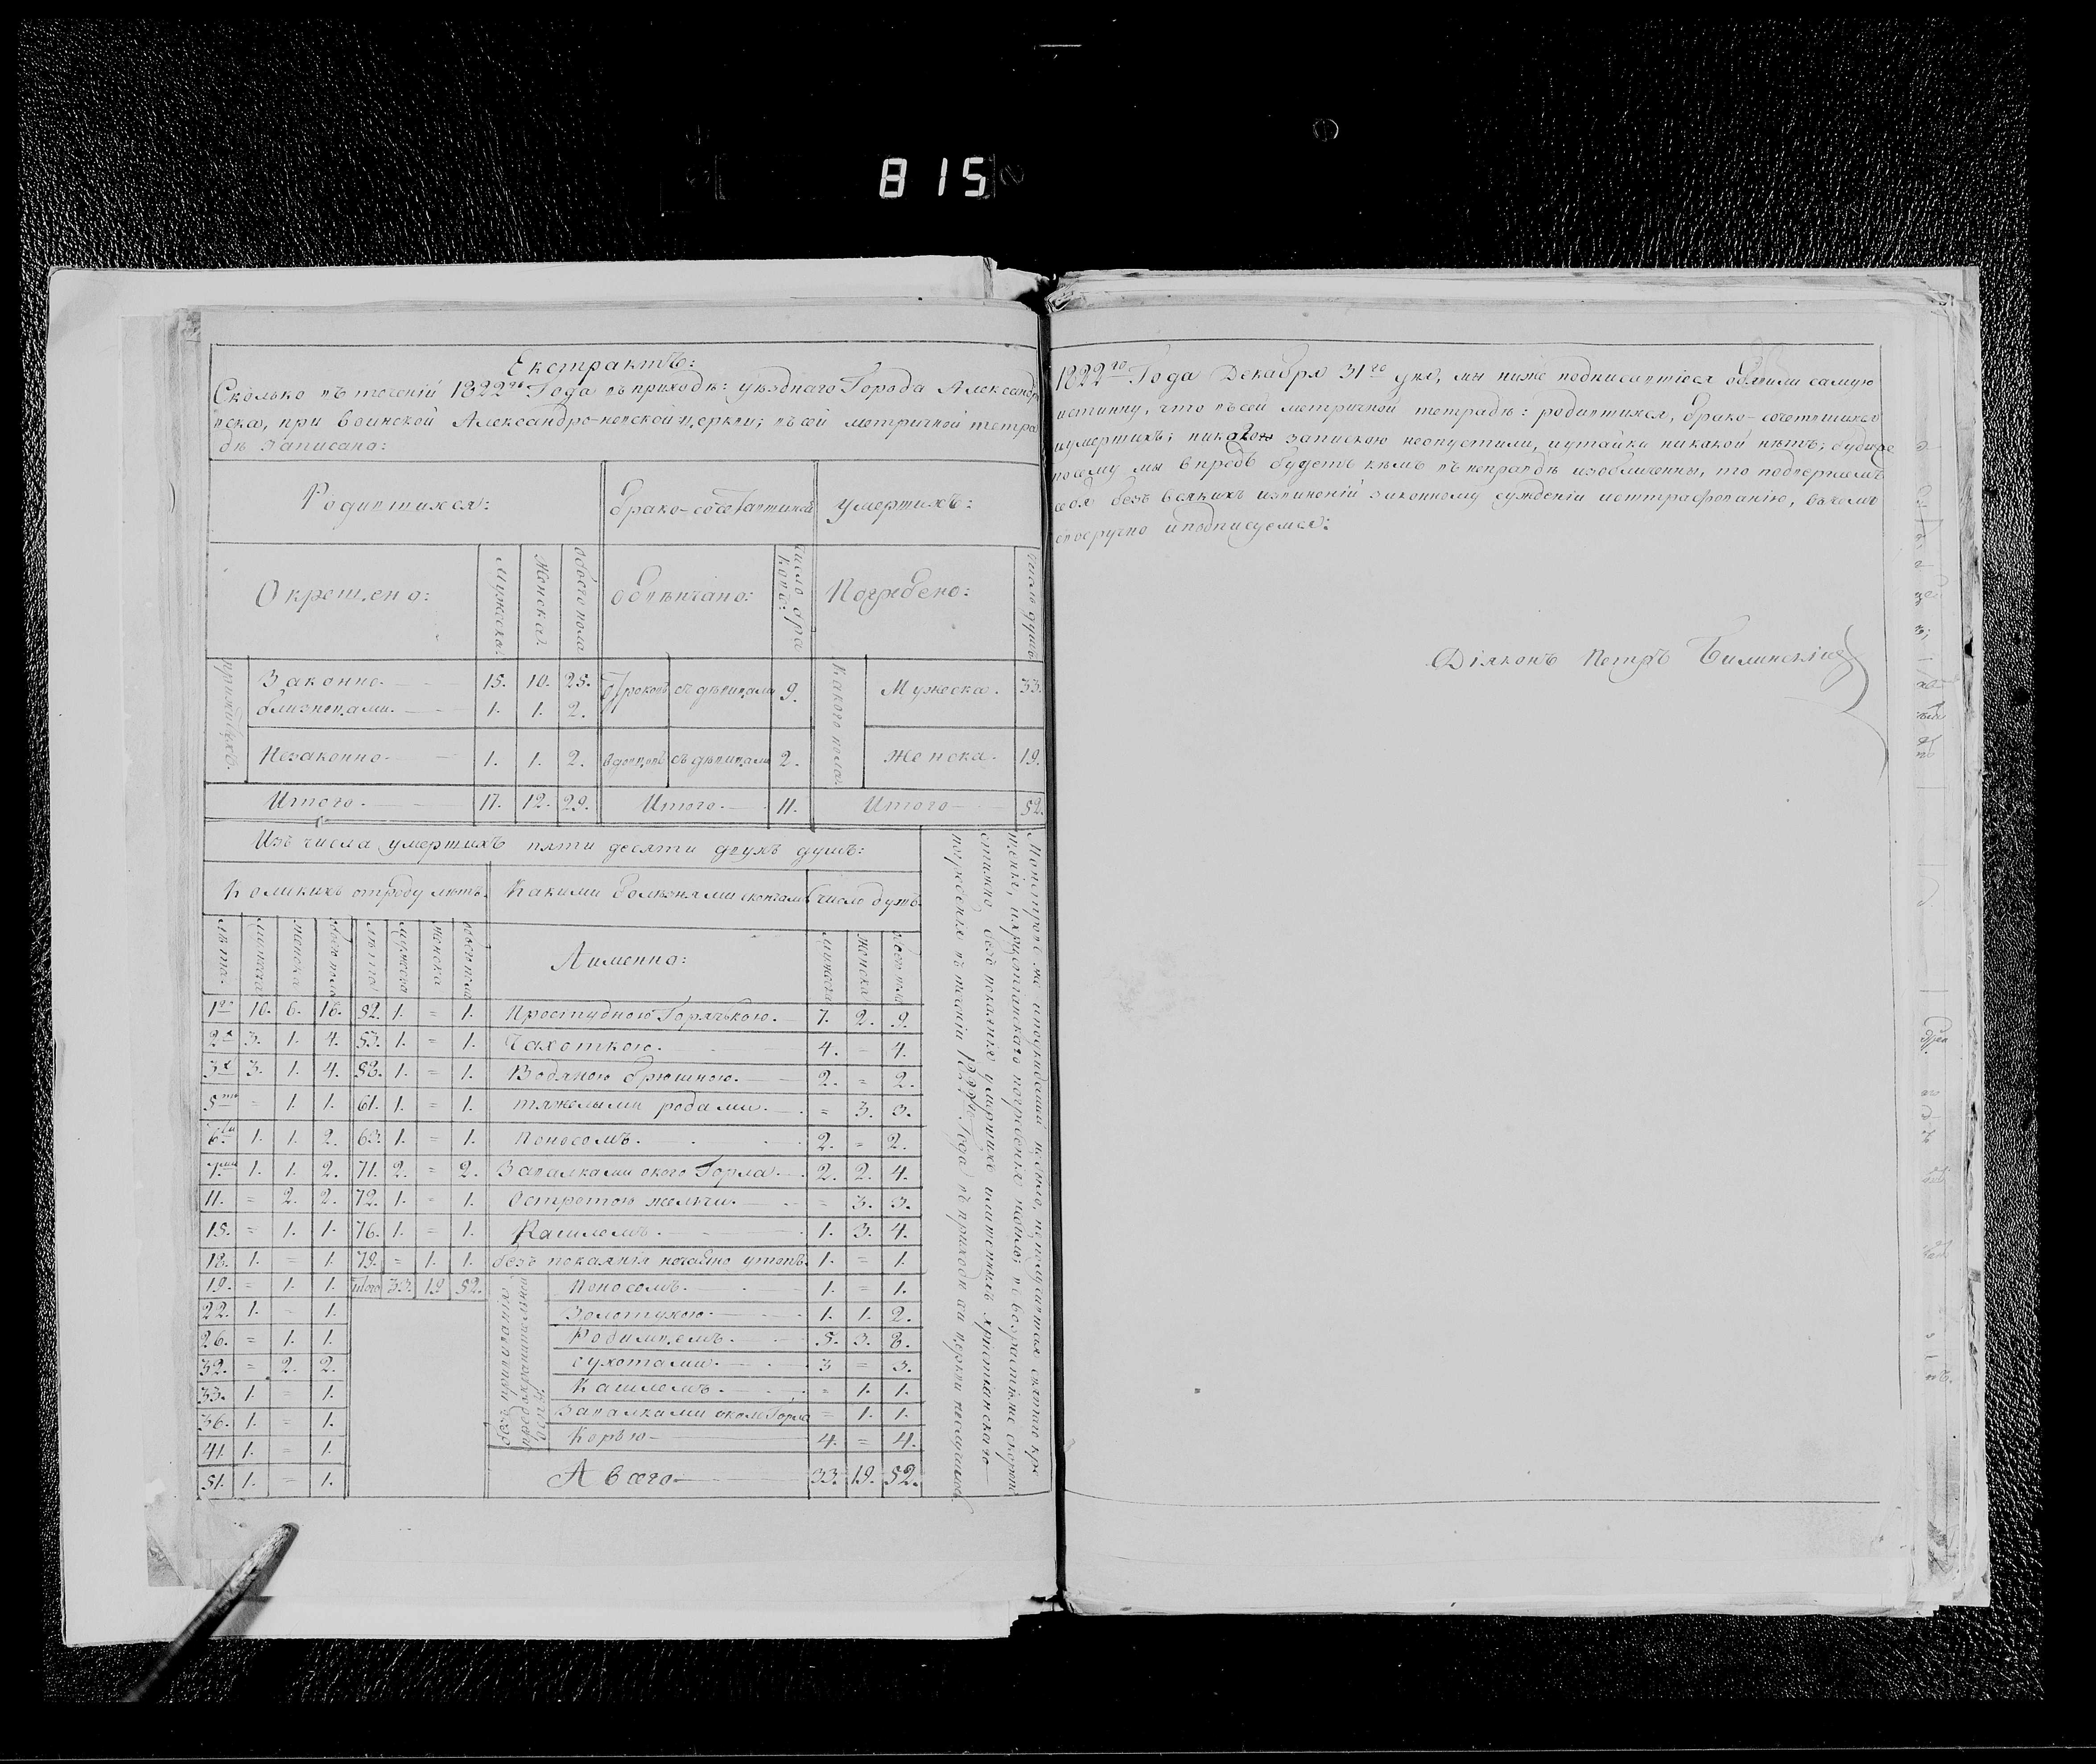 815
Екстрактъ:
Сколько въ теченіи 1822го Года въ приходѣ: уѣзднаго Города Александро
вска, при воинской Александро-невской церкви; въ сей метричной тетра
дѣ записано:
Родившихся: Брако-сочетавшихся умершихъ:
Окрещено: Мужска. Женска. обоего пола Обвѣнчано: число бра ковъ: Погребено: число душъ
прижитыхъ. Законно. 15. 10. 25. Отроковъ съ дѣвицами 9. Какого пола. Мужеска. 33.
близнецами. 1. 1. 2.
Незаконно. 1. 1. 2. вдовцовъ съ дѣвицами 2. Женска. 19.
Итого. 17. 12. 29. Итого. 11. Итого 52.
Изъ числа умершихъ пяти десяти двухъ душъ:
Коликихъ отроду лѣтъ. Какими болѣзнями скончали Число душъ
лѣта. мужеска женска обоего пола лѣта мужеска женска обоего пола Аименно: мужеска женска обоего пола
1го 10. 6. 16. 52. 1. = 1. Простудною Горячькою. 7. 2. 9.
2х 3. 1. 4. 53. 1. = 1. Чахоткою. 4. = 4.
3х 3. 1. 4. 58. 1. = 1. Водяною брюшною. 2. = 2.
5ти = 1. 1. 61. 1. = 1. тяжелыми родами. = 3. 3.
6ти 1. 1. 2. 63. 1. = 1. Поносомъ. 2. = 2.
7ми 1. 1. 2. 71. 2. = 2. Завалками около Горла. 2. 2. 4.
11. = 2. 2. 72. 1. = 1. Остротою желчи. = 3. 3.
15. = 1. 1. 76. 1. = 1. Кашлемъ. 1. 3. 4.
18. 1. = 1. 79. = 1. 1. безъ покаянія нечаяно утопъ. 1. = 1.
19. = 1. 1. Итого 33. 19 52. безъ предохранительной оспы. Поносомъ. 1. = 1.
22. 1. = 1. Золотухою 1. 1. 2.
26. = 1. 1. Родимцемъ. 5. 3. 8.
32. = 2. 2. сухотами. 3 = 3.
33. 1. = 1. Кашлемъ. = 1. 1.
36. 1. = 1. Завалками около Горла = 1. 1.
41. 1. = 1. Корью 4. = 4.
51. 1. = 1. А всего 33. 19. 52.
христіанскаго погребенія
безъ покаянія умершихъ христіанскаго
погребенія въ теченіи 1822го Года въ приходѣ церкви
1822го Года Декабря 31го дня, мы ниже подписавшіеся объявили самую
истинну, что въ сей метричной тетрадѣ: родившихся, брако-сочетавшихся
иумершихъ; никого запискою неопустили, иутайки никакой нѣтъ;
посему мы впредъ будетъ кѣмъ въ неправдѣ изобличенны, то подвергаемъ
себя безъ всякихъ извиненій законному сужденію иоштрафованію, въчемъ
своеручно иподписуемся:
Діяконъ Петръ Билинскій